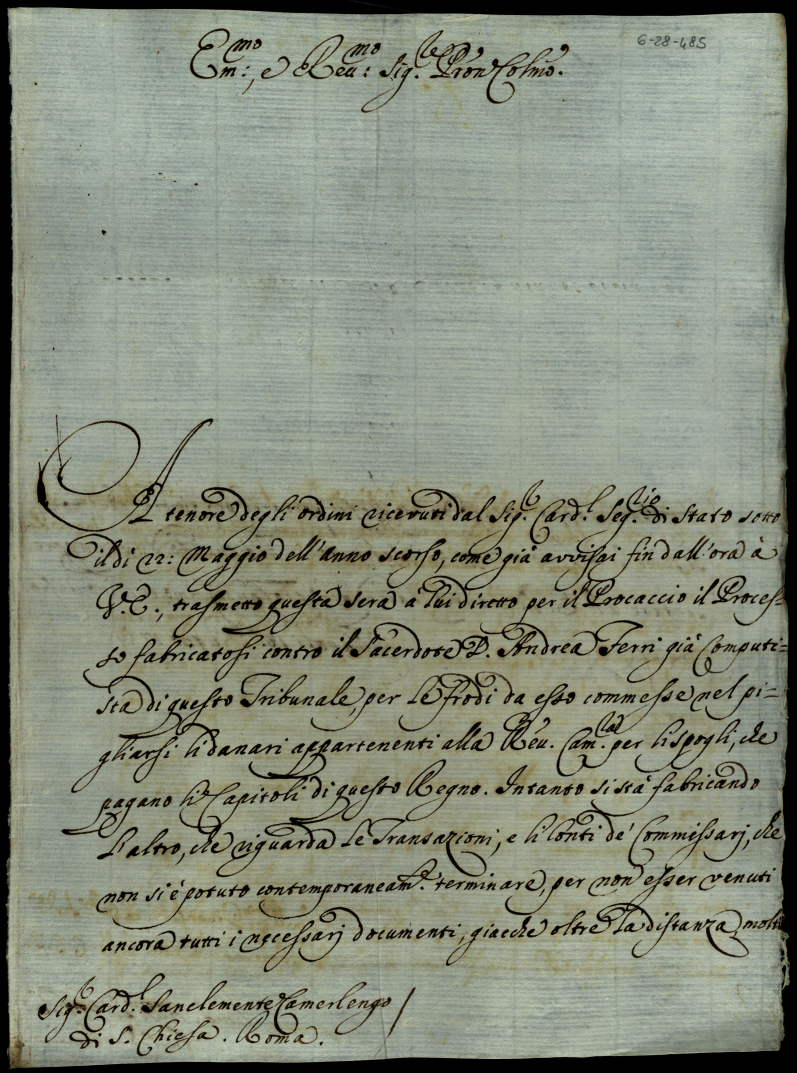 6-28-485
Em:mo, e Reu:mo Sig.re Pron Colmo.
A tenore degli ordini ricevuti dal Sig.r Card.l Seg.rio di Stato sotto
il di 22: Maggio dell'anno scorso, come già avvisai fin dall'ora à
V.E., trasmetto questa sera à lui diretto per il Procaccio il Proces=
so fabricatosi contro il Sacerdote D. Andrea Ferri già Computi=
sta di questo Tribunale, per le frodi da esso commesse nel pi=
gliarsi li danari appartenenti alla Reu. Cam.ra per li spogli, che
pagano li Capitoli di questo Regno. Intanto si stà fabricando
l'altro, che riguarda le Transazioni, e li Conti de' Commissarj, che
non si è potuto contemporaneam.te terminare, per non esser venuti
ancora tutti i necessarj documenti, giacche oltre la distanza, molti
Sig.r Card.l Sanclemente Camerlengo /
di S. Chiesa. Roma.